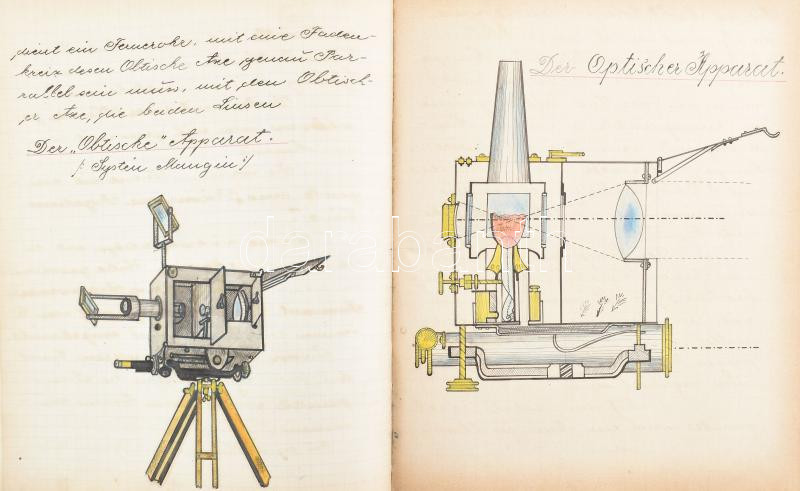 dient ein Fernrohr, mit eine Faden-
kreix desen Obtische Axe genau Par-
rallel sein mus, mit den Obtisch-
er Axe, die beiden Linsen
Der „Obtische" Apparat.
/: Systén Mangin :/
Der Optischer Apparat.
darabanth.com